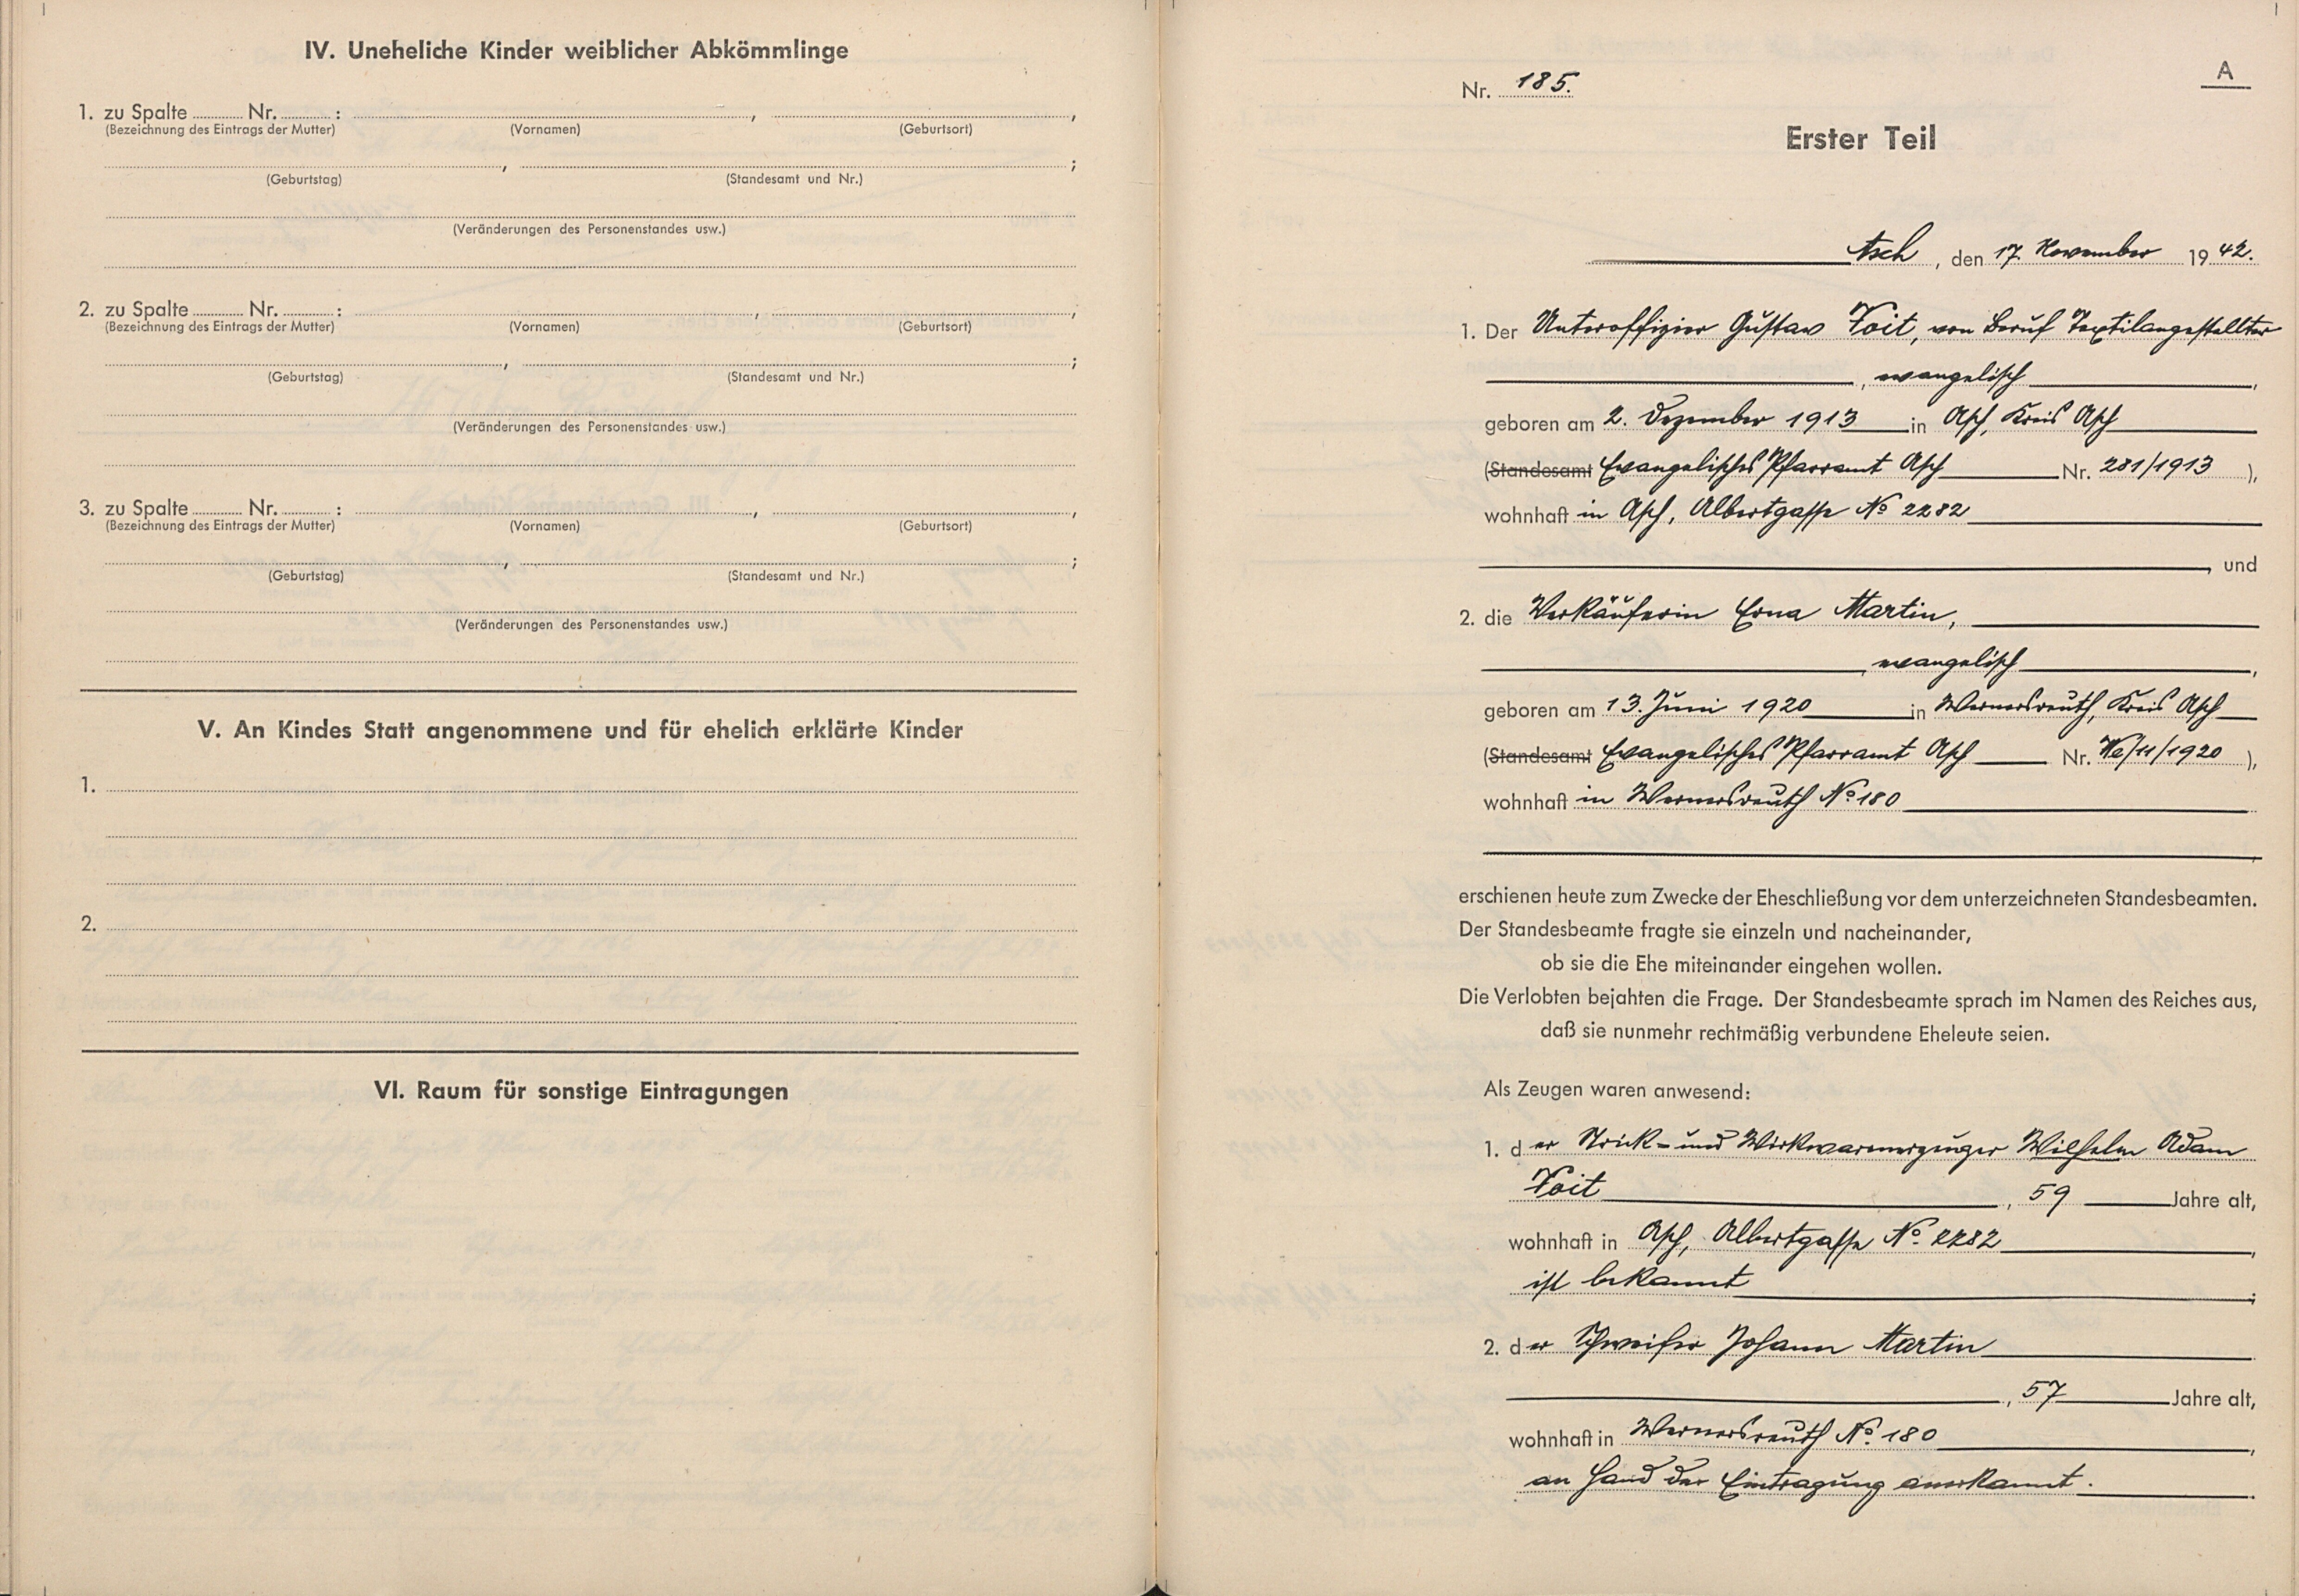 IV. Uneheliche Kinder weiblicher Abkömmlinge
1. zu Spalte ........ Nr. ........ : , ,
(Bezeichnung des Eintrags der Mutter) (Vornamen) (Geburtsort)
, ;
(Geburtstag) (Standesamt und Nr.)
(Veränderungen des Personenstandes usw.)
2. zu Spalte ........ Nr. ........ : , ,
(Bezeichnung des Eintrags der Mutter) (Vornamen) (Geburtsort)
, ;
(Geburtstag) (Standesamt und Nr.)
(Veränderungen des Personenstandes usw.)
3. zu Spalte ........ Nr. ........ : , ,
(Bezeichnung des Eintrags der Mutter) (Vornamen) (Geburtsort)
, ;
(Geburtstag) (Standesamt und Nr.)
(Veränderungen des Personenstandes usw.)
V. An Kindes Statt angenommene und für ehelich erklärte Kinder
1.
2.
VI. Raum für sonstige Eintragungen
A
Nr. 185.
Erster Teil
Asch, den 17. November 1942.
1. Der Unteroffizier Gustav Voit, von Beruf Textilangestellter
, evangelisch,
geboren am 2. Dezember 1913 in Asch, Kreis Asch
(Standesamt Evangelisches Pfarramt Asch Nr. 281/1913 ),
wohnhaft in Asch, Albertgasse No 2282
, und
2. die Verkäuferin Erna Martin,
, evangelisch,
geboren am 13. Juni 1920 in Wernersreuth, Kreis Asch
(Standesamt Evangelisches Pfarramt Asch Nr. We/11/1920 ),
wohnhaft in Wernersreuth No 180
erschienen heute zum Zwecke der Eheschließung vor dem unterzeichneten Standesbeamten.
Der Standesbeamte fragte sie einzeln und nacheinander,
ob sie die Ehe miteinander eingehen wollen.
Die Verlobten bejahten die Frage. Der Standesbeamte sprach im Namen des Reiches aus,
daß sie nunmehr rechtmäßig verbundene Eheleute seien.
Als Zeugen waren anwesend:
1. der Strick- und Wirkwarenerzeuger Wilhelm Adam
Voit, 59 Jahre alt,
wohnhaft in Asch, Albertgasse No. 2282,
ist bekannt;
2. der Schweifer Johann Martin
, 57 Jahre alt,
wohnhaft in Wernersreuth No. 180,
an Hand der Eintragung anerkannt.